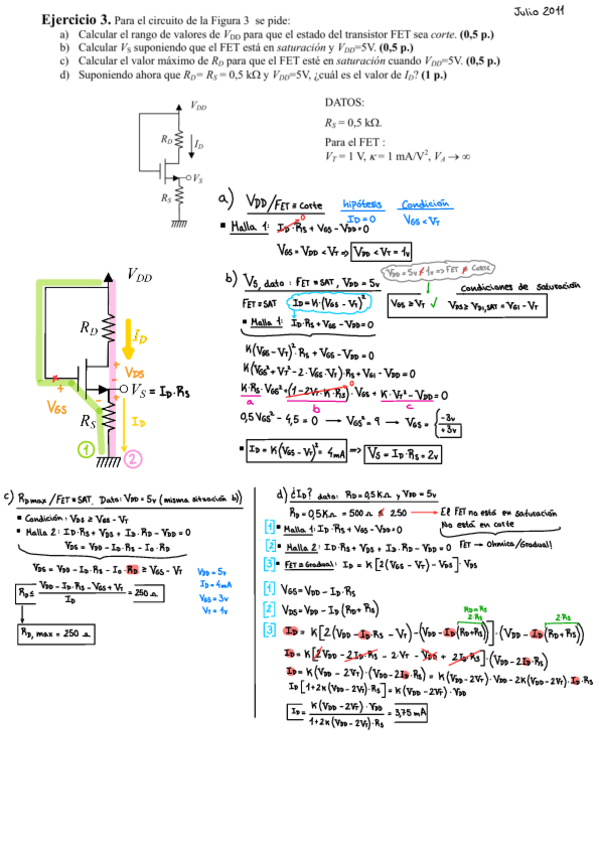 Julio 2011
Ejercicio 3. Para el circuito de la Figura 3 se pide:
a) Calcular el rango de valores de V_DD para que el estado del transistor FET sea corte. (0,5 p.)
b) Calcular V_S suponiendo que el FET está en saturación y V_DD=5V. (0,5 p.)
c) Calcular el valor máximo de R_D para que el FET esté en saturación cuando V_DD=5V. (0,5 p.)
d) Suponiendo ahora que R_D= R_S = 0,5 kΩ y V_DD=5V, ¿cuál es el valor de I_D? (1 p.)
V_DD
R_D
I_D
V_S
R_S
DATOS:
R_S = 0,5 kΩ.
Para el FET :
V_T = 1 V, κ = 1 mA/V², V_A → ∞
a) VDD/FET = corte
hipótesis
Condición
ID=0
VGS < VT
▪ Malla 1: ID·RS + VGS - VDD=0
0
VGS = VDD < VT ⇒ VDD < VT = 1v
V_DD
R_D
ID
VDS
V_S = ID·RS
VGS
R_S
ID
1
2
b) VS, dato: FET = SAT, VDD = 5v
VDD = 5v ≮ 1v => FET ≠ CORTE
Condiciones de saturación
FET = SAT ID = K·(VGS - VT)²
VGS ≥ VT ✓ VDS ≥ VDS,SAT = VGS - VT
▪ Malla 1: ID·RS + VGS - VDD=0
K(VGS - VT)²·RS + VGS - VDD=0
K(VGS² + VT² - 2·VGS·VT)·RS + VGS - VDD=0
K·RS·VGS² + (1 - 2VT·K·RS)·VGS + K·VT² - VDD=0
0
a b c
0,5VGS² - 4,5 = 0 → VGS² = 9 → VGS = { -3v
+3v
▪ ID = K(VGS - VT)² = 4mA => VS = ID·RS = 2v
c) RDmax/FET = SAT. Dato: VDD = 5v (misma situación b))
▪ Condición: VDS ≥ VGS - VT
▪ Malla 2: ID·RS + VDS + ID·RD - VDD = 0
VDS = VDD - ID·RS - ID·RD
VDS = VDD - ID·RS - ID·RD ≥ VGS - VT
VDD = 5v
ID = 4mA
VGS = 3v
VT = 1v
RD ≤ (VDD - ID·RS - VGS + VT)/ID = 250 Ω
RD, max = 250 Ω
d) ¿ID? dato: RD=0,5KΩ y VDD=5v
RD = 0,5KΩ = 500 Ω ≰ 250 → El FET no está en saturación
No está en corte
[1] ▪ Malla 1: ID·RS + VGS - VDD=0
[2] ▪ Malla 2: ID·RS + VDS + ID·RD - VDD = 0 FET → Ohmica/Gradual!
[3] ▪ FET = Gradual: ID = K[2(VGS - VT) - VDS]·VDS
[1] VGS = VDD - ID·RS
[2] VDS = VDD - ID(RD + RS)
RD=RS
2·RS 2·RS
[3] ID = K[2(VDD - ID·RS - VT) - (VDD - ID(RD+RS))]·(VDD - ID(RD+RS))
ID = K[2VDD - 2ID·RS - 2·VT - VDD + 2ID·RS]·(VDD - 2ID·RS)
ID = K(VDD - 2VT)·(VDD - 2ID·RS) = K(VDD - 2VT)·VDD - 2K(VDD - 2VT)·ID·RS
ID[1 + 2K(VDD - 2VT)·RS] = K(VDD - 2VT)·VDD
ID = K(VDD - 2VT)·VDD/1+2K(VDD - 2VT)·RS = 3,75 mA